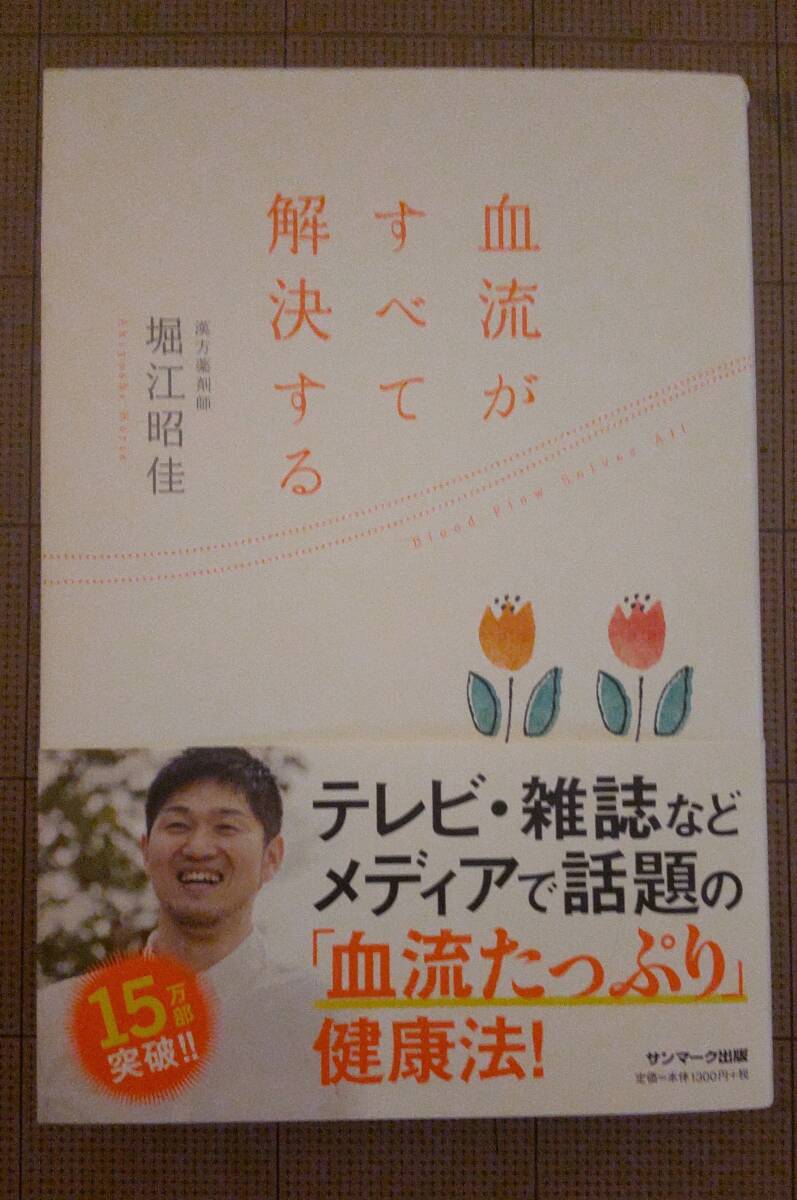 血流が
すべて
解決する
漢方薬剤師
堀江昭佳
Akiyoshi Horie
Blood Flow Solves All
テレビ・雑誌など
メディアで話題の
「血流たっぷり」
健康法!
15万部
突破!!
サンマーク出版
定価=本体1300円+税